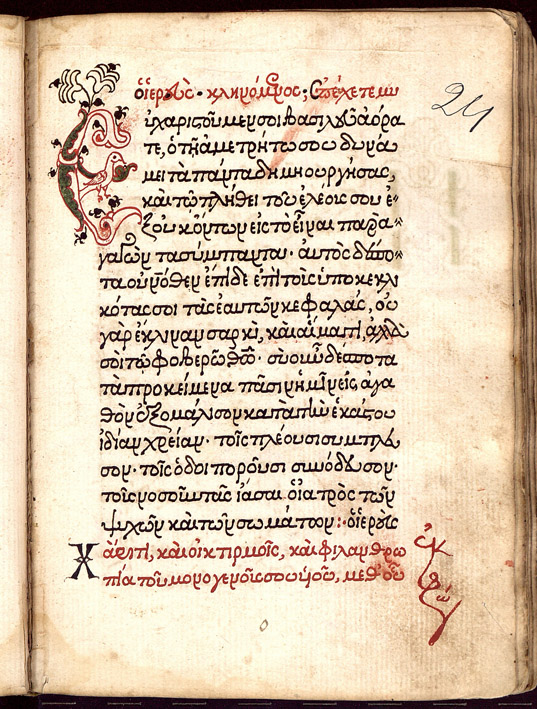 ὁ ἱερεὺς · κλινόμενος;
24
Εὐχαριστοῦμεν σοι βασιλεῦ ἀόρα
τε, ὁ τῇ ἀμετρήτω σου δυνά
μει τὰ πάντα δημιουργήσας,
καὶ τῶ πλήθει τοῦ ἐλέους σου ἐ
ξ οὐκ ὄντων εἰς τὸ εἶναι παρα
γαγὼν τὰ σύμπαντα· αὐτὸς δέσπο
τα οὐρανόθεν ἔπιδε ἐπὶ τοὺς ὑποκεκλι
κότας σοι τὰς ἑαυτῶν κεφαλάς, οὐ
γὰρ ἔκλιναν σαρκὶ, καὶ αἵματι, ἀλλὰ
σοὶ τῶ φοβερῶ θεῶ· σὺ οὖν δέσποτα
τὰ προκείμενα πᾶσιν ἡμῖν εἰς ἀγα
θὸν ἐξομάλισον κατὰ τὴν ἑκάστου
ἰδίαν χρείαν· τοῖς πλέουσι συμπλευ
σον· τοῖς ὁδοιποροῦσι συνόδευσον·
τοὺς νοσοῦντας ἴασαι ὁ ἰατρὸς τῶν
ψυχῶν καὶ τῶν σωμάτων :· ὁ ἱερεὺς
Χάριτι, καὶ οἰκτιρμοῖς, καὶ φιλανθρω
πία τοῦ μονογενοῦς σου υἱοῦ, μεθ' οὗ